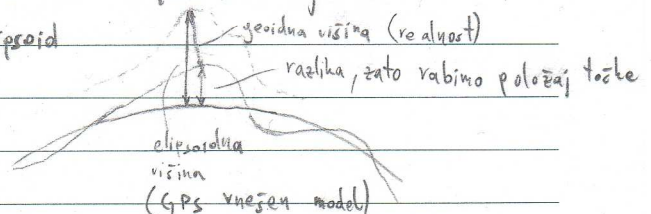 geoidna višina (realnost)
ipsoid
razlika, zato rabimo položaj točke
elipsoidna
višina
(GPS vnešen model)